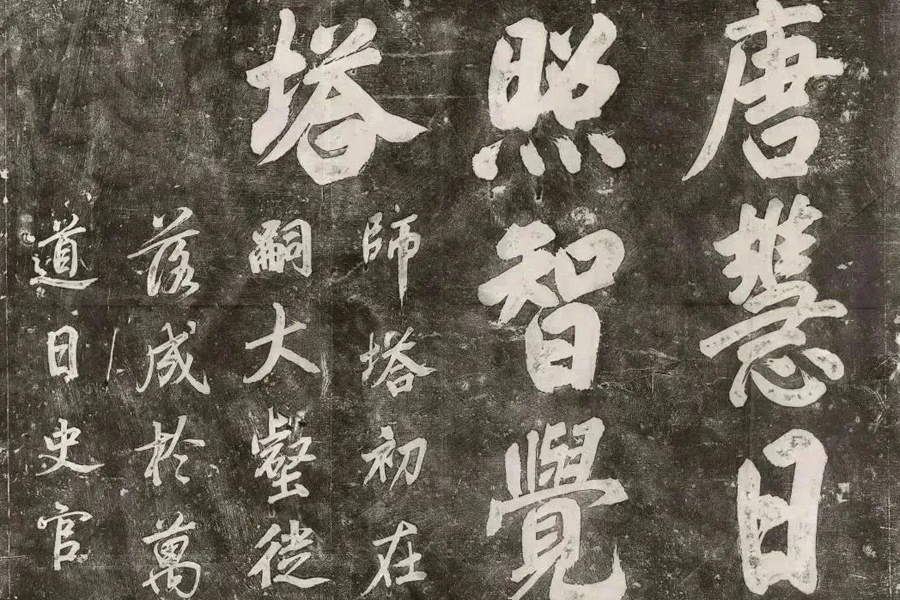 唐慧日
照智覺
塔
師塔初在
嗣大壑徙
落成於萬
道日史官